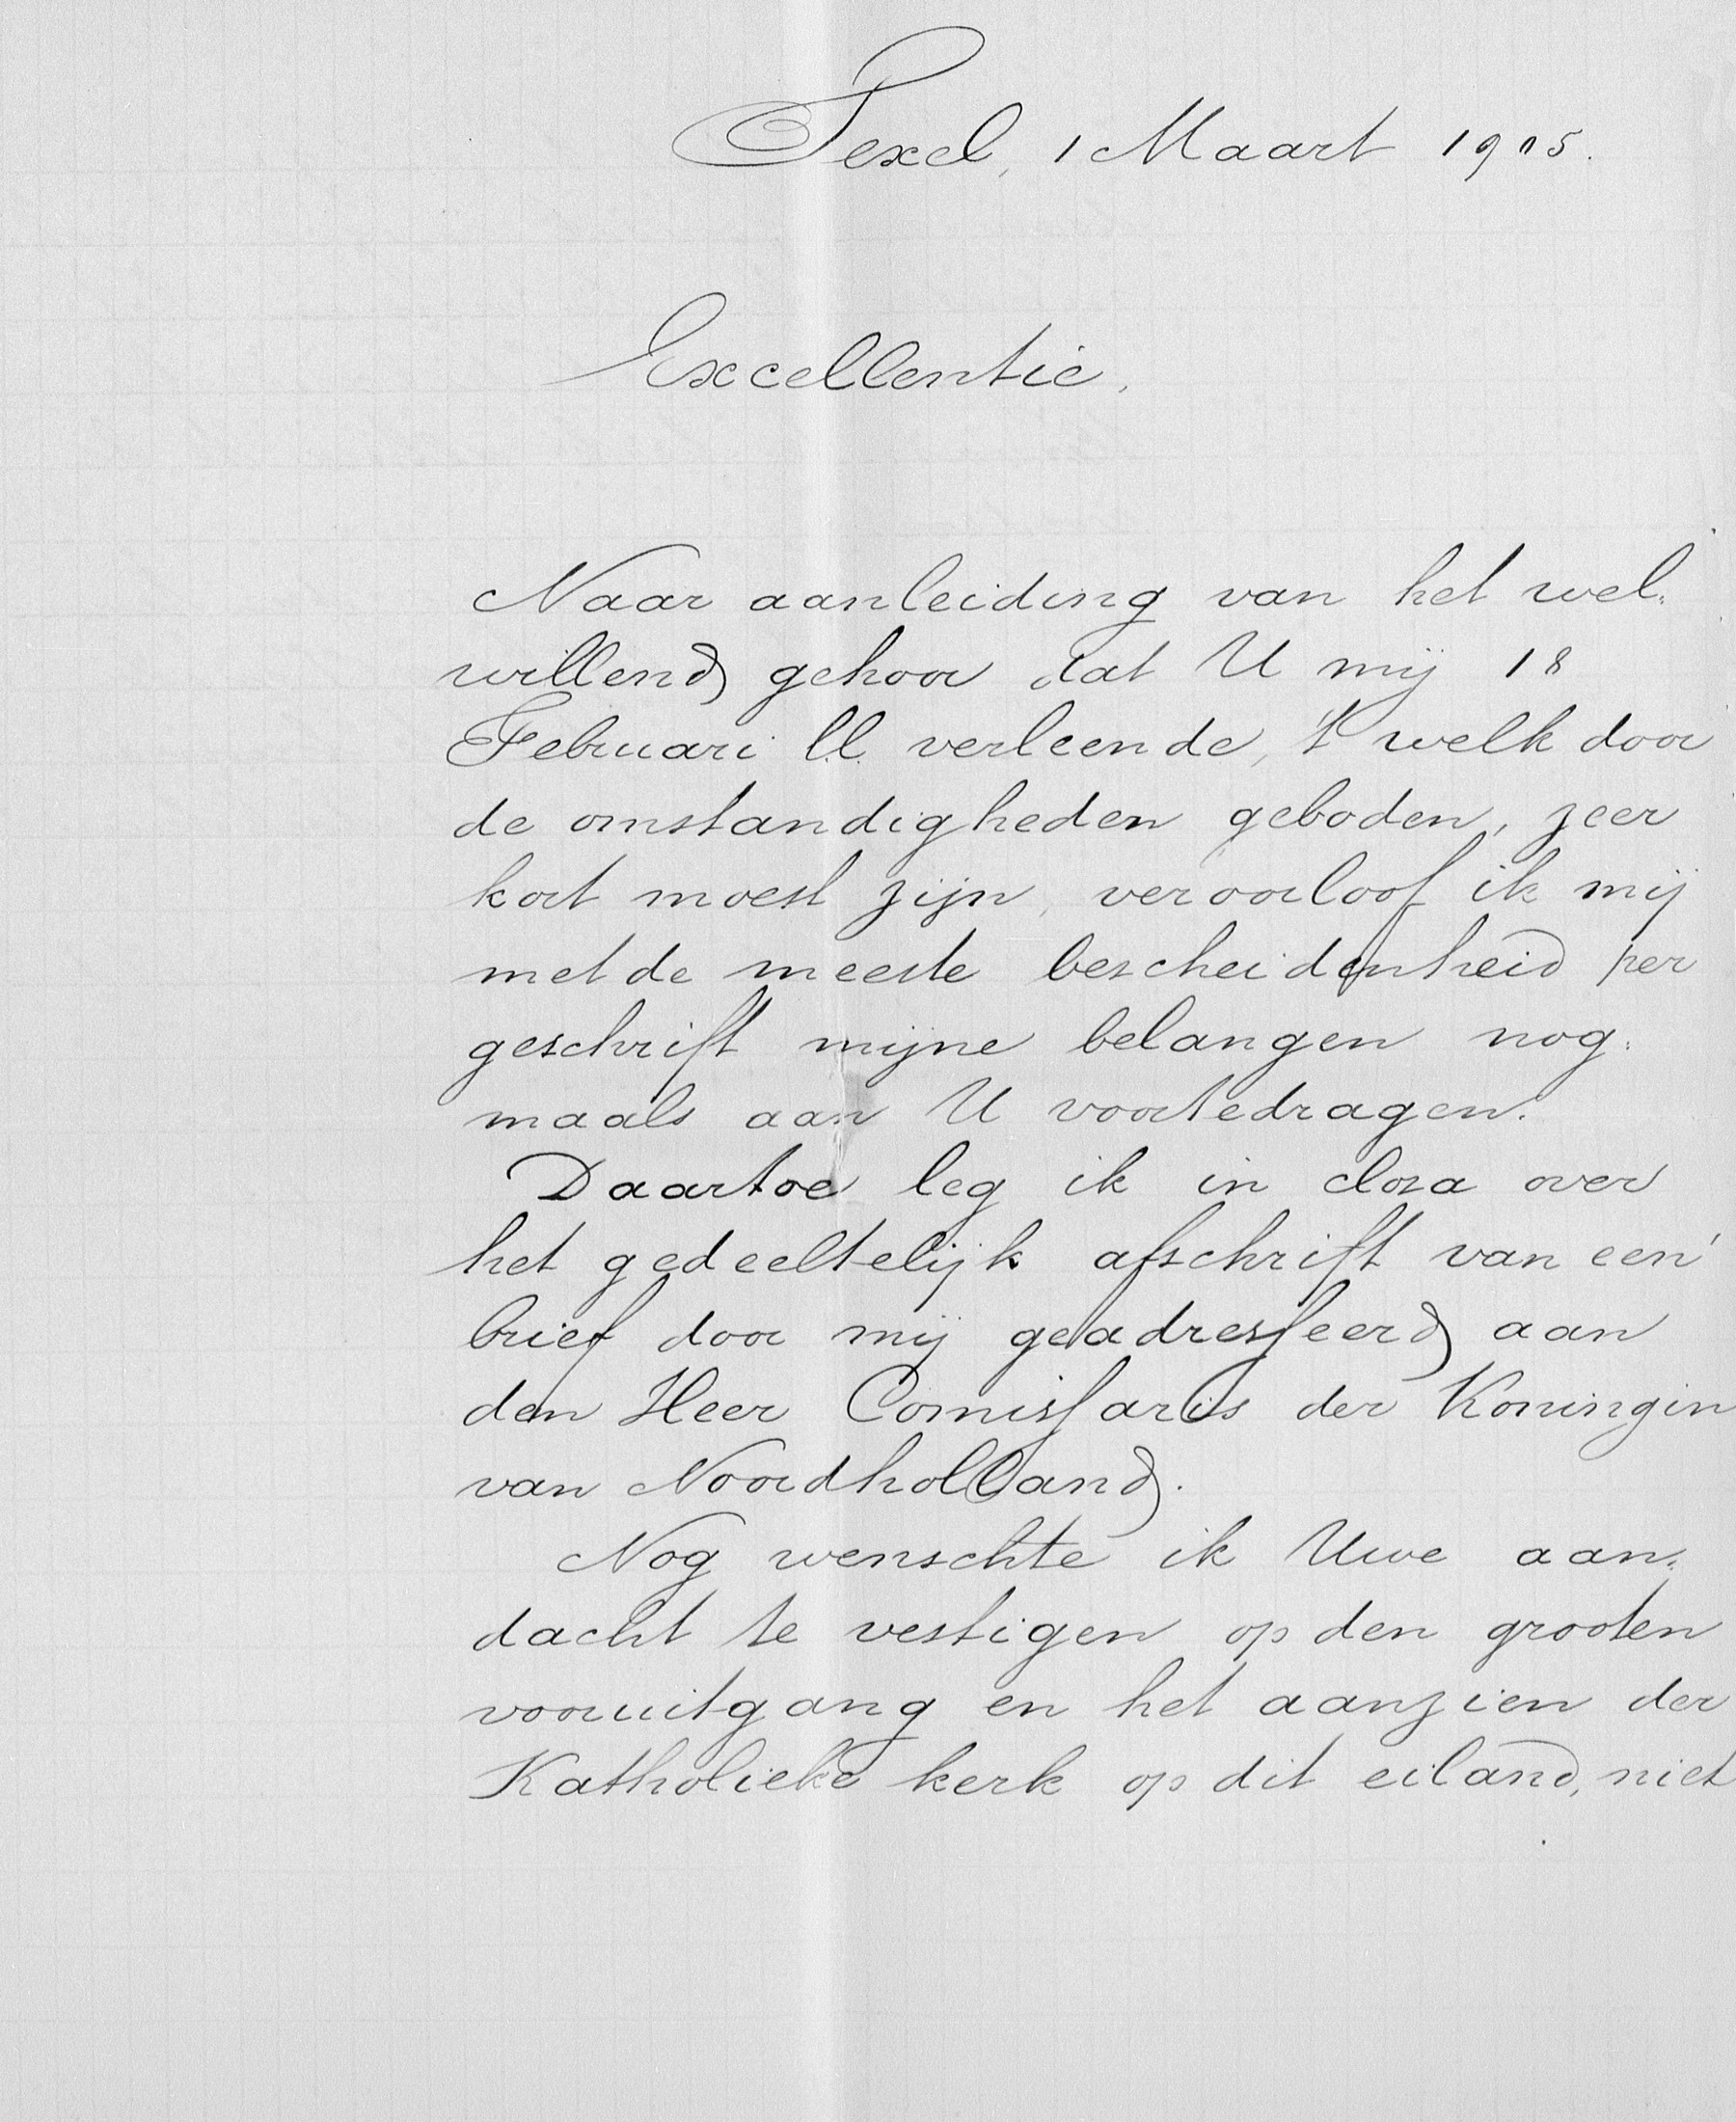 Texel, 1 Maart 1905.
Excellentie,
Naar aanleiding van het wel:
willend gehoor dat U mij 18
Februari l.l. verleende, 't welk door
de omstandigheden geboden, zeer
kort moest zijn, veroorloof ik mij
met de meeste bescheidenheid per
geschrift mijne belangen nog:
maals aan U voortedragen.
Daartoe leg ik in closa over
het gedeeltelijk afschrift van een
brief door mij geadresseerd aan
den Heer Comissaris der Koningin
van Noordholland.
Nog wenschte ik Uwe aan:
dacht te vestigen op den grooten
vooruitgang en het aanzien der
Katholieke kerk op dit eiland, niet